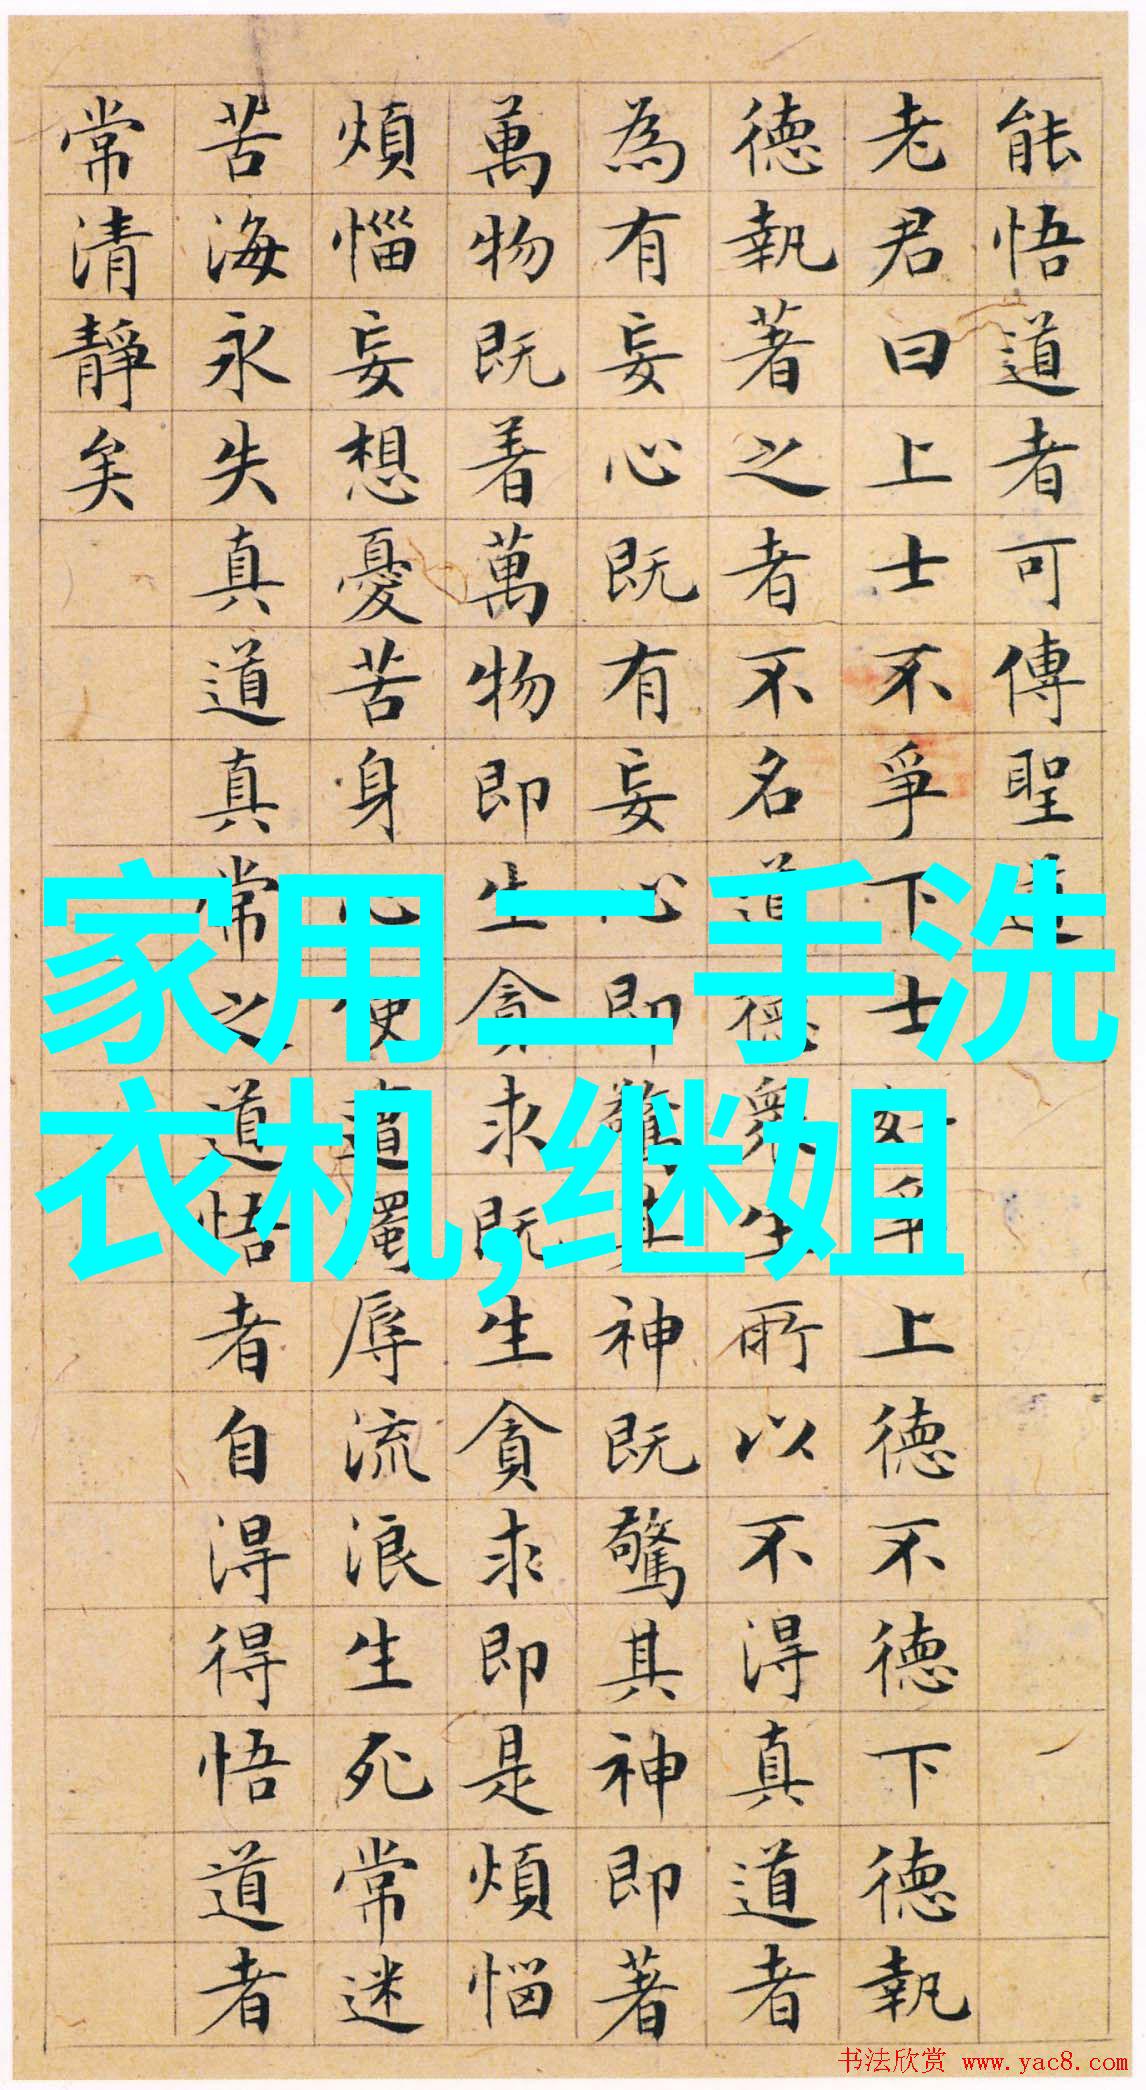 能悟道者可傳聖道
老君曰上士不爭下士好爭上德不德下德執
德執著之者不名道德衆生所以不得真道者
為有妄心既有妄心即驚其神既驚其神即著
萬物既着萬物即生貪求既生貪求即是煩惱
煩惱妄想憂苦身心便遭濁辱流浪生死常迷
苦海永失真道真常之道悟者自得得悟道者
常清靜矣
家用二手洗
衣机,继姐
书法欣赏 www.yac8.com